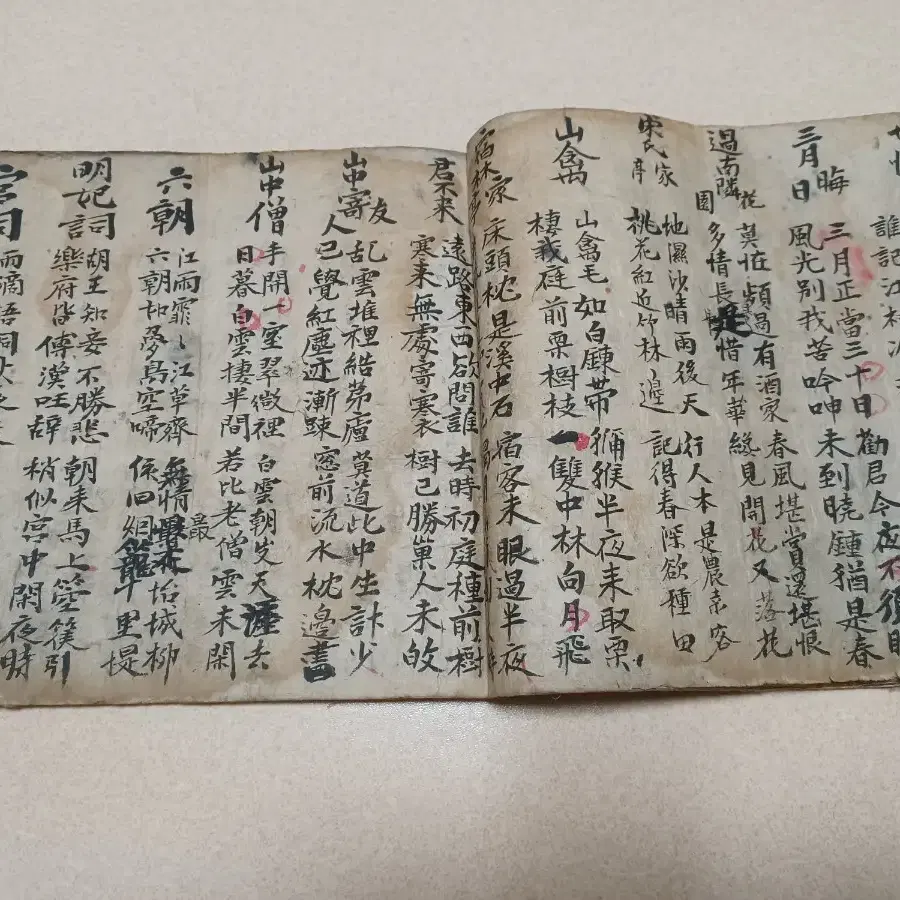 誰記江村
三月晦日
三月正當三十日 勸君今夜不須眠
風光別我苦吟呻 未到曉鍾猶是春
過南隣花園
莫怪頻過有酒家 春風堪賞還堪恨
多情長是惜年華 纔見開花又落花
家
地濕沙晴雨後天 行人本是農家客
桃花紅近竹林邊 記得春深欲種田
山禽
山禽毛如白練帶 獼猴半夜來取栗
棲我庭前栗樹枝 一雙中林向月飛
宿林家
床頭枕是溪中石 宿客未眼過半夜
君不来
遠路東西欲問誰 去時初庭種前樹
寒来無處寄寒衣 樹已勝巢人未皈
山中寄友人
乱雲堆裡結茅廬 莫道此中生計少
已覺紅塵迹漸踈 窓前流水枕邊書
山中僧
手開一室翠微裡 白雲朝失天涯去
日暮白雲捿半間 若比老僧雲未閑
六朝
江雨霏〻江草齊 無情最 怡城柳
六朝如夢鳥空啼 係旧烟籠十里堤
明妃詞
胡王知妾不勝悲 朝来馬上箜篌引
樂府皆傳漢旺辞 稍似宮中閑夜時
宮詞
雨滴梧桐秋夜